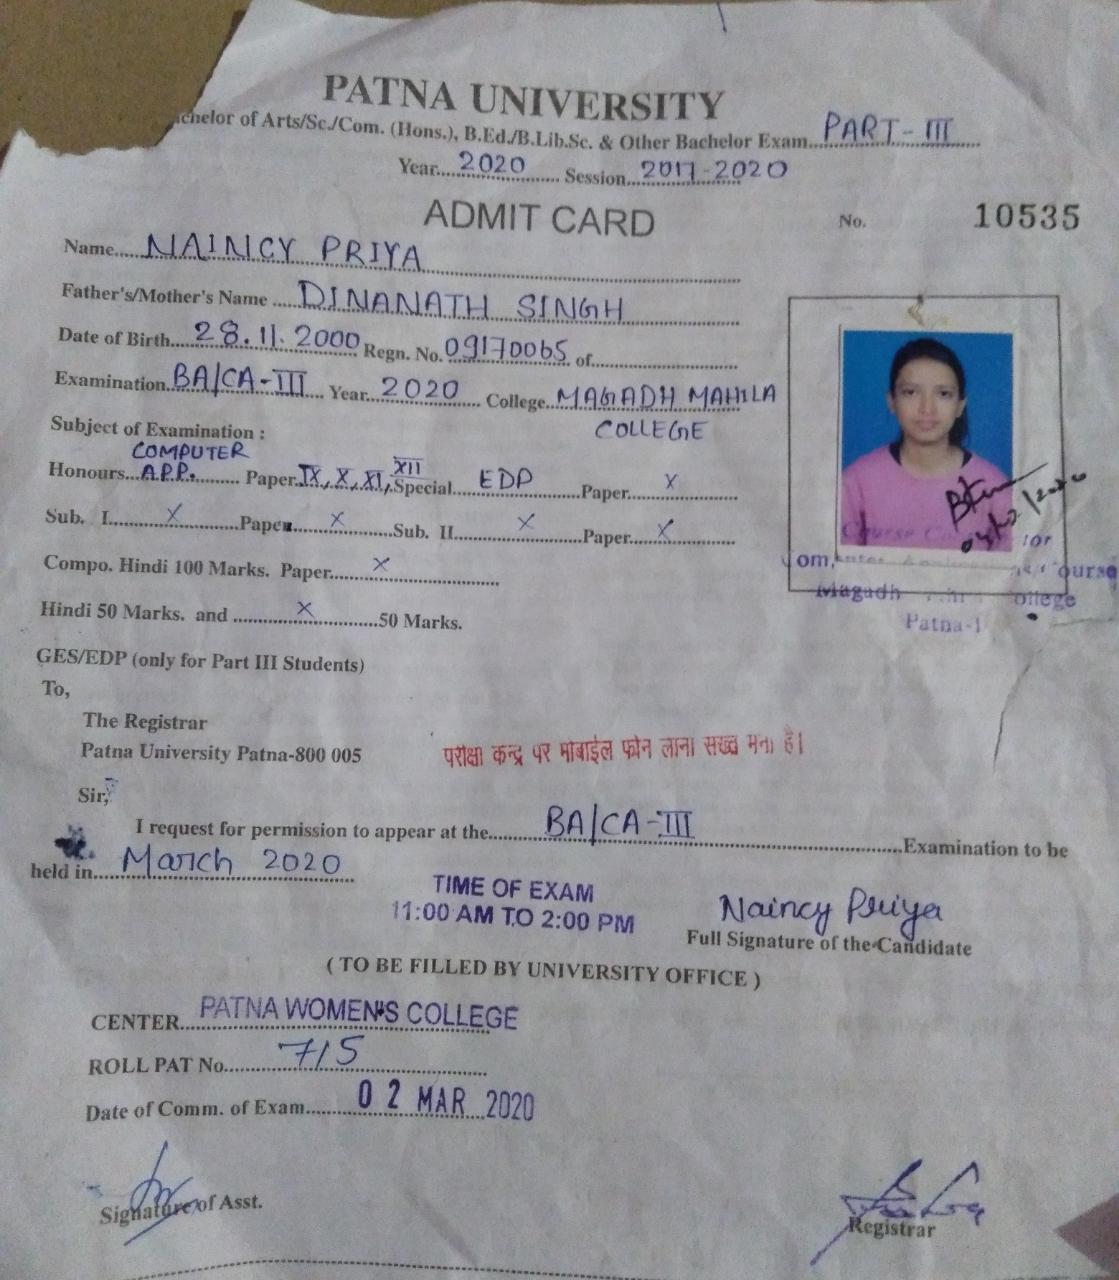 PATNA UNIVERSITY
chelor of Arts/Sc./Com. (Hons.), B.Ed./B.Lib.Sc. & Other Bachelor Exam....PART-III
Year....2020.... Session....2017-2020
ADMIT CARD
No. 10535
Name....NAINCY PRIYA
Father's/Mother's Name ....DINANATH SINGH
Date of Birth....28.11.2000 Regn. No.09170065 of....
Examination.BA/CA-III.... Year...2020.... College..MAGADH MAHILA
COLLEGE
Subject of Examination :
COMPUTER
Honours...APP..... Paper.IX, X, XI, XII Special....EDP....Paper....X
Sub. I....X....Paper....X....Sub. II....X....Paper....X
Compo. Hindi 100 Marks. Paper....X
Hindi 50 Marks. and ....X....50 Marks.
GES/EDP (only for Part III Students)
To,
The Registrar
Patna University Patna-800 005
परीक्षा केन्द्र पर मोबाईल फोन लाना सख्त मना है।
Sir,
I request for permission to appear at the....BA/CA-III....Examination to be
held in....March 2020
TIME OF EXAM
11:00 AM TO 2:00 PM
Naincy Priya
Full Signature of the Candidate
( TO BE FILLED BY UNIVERSITY OFFICE )
CENTER....PATNA WOMEN'S COLLEGE
ROLL PAT No....715
Date of Comm. of Exam....02 MAR 2020
Signature of Asst.
Registrar
Course
Course
Magadh ollege
Patna-1